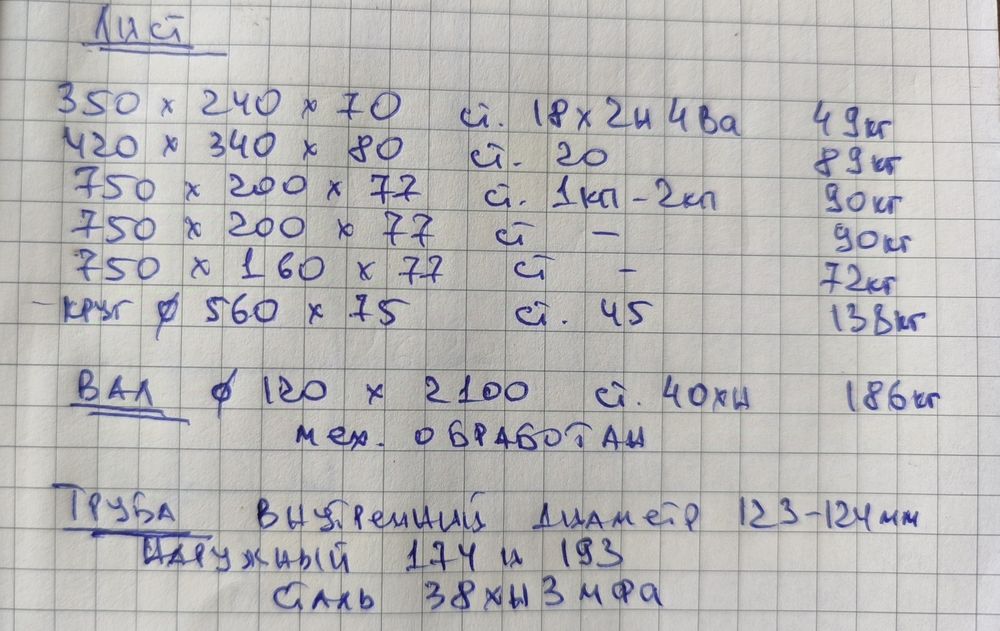 Лист
350 х 240 х 70 ст. 18х2н4ва 49кг
420 х 340 х 80 ст. 20 89кг
750 х 200 х 77 ст. 1кп-2кп 90кг
750 х 200 х 77 ст - 90кг
750 х 160 х 77 ст - 72кг
- круг ф 560 х 75 ст. 45 138кг
ВАЛ ф 120 х 2100 ст. 40хн 186кг
мех. ОБРАБОТАН
ТРУБА ВНУТРЕННИЙ ДИАМЕТР 123-124мм
НАРУЖНЫЙ 174 и 193
Сталь 38хн3мфа